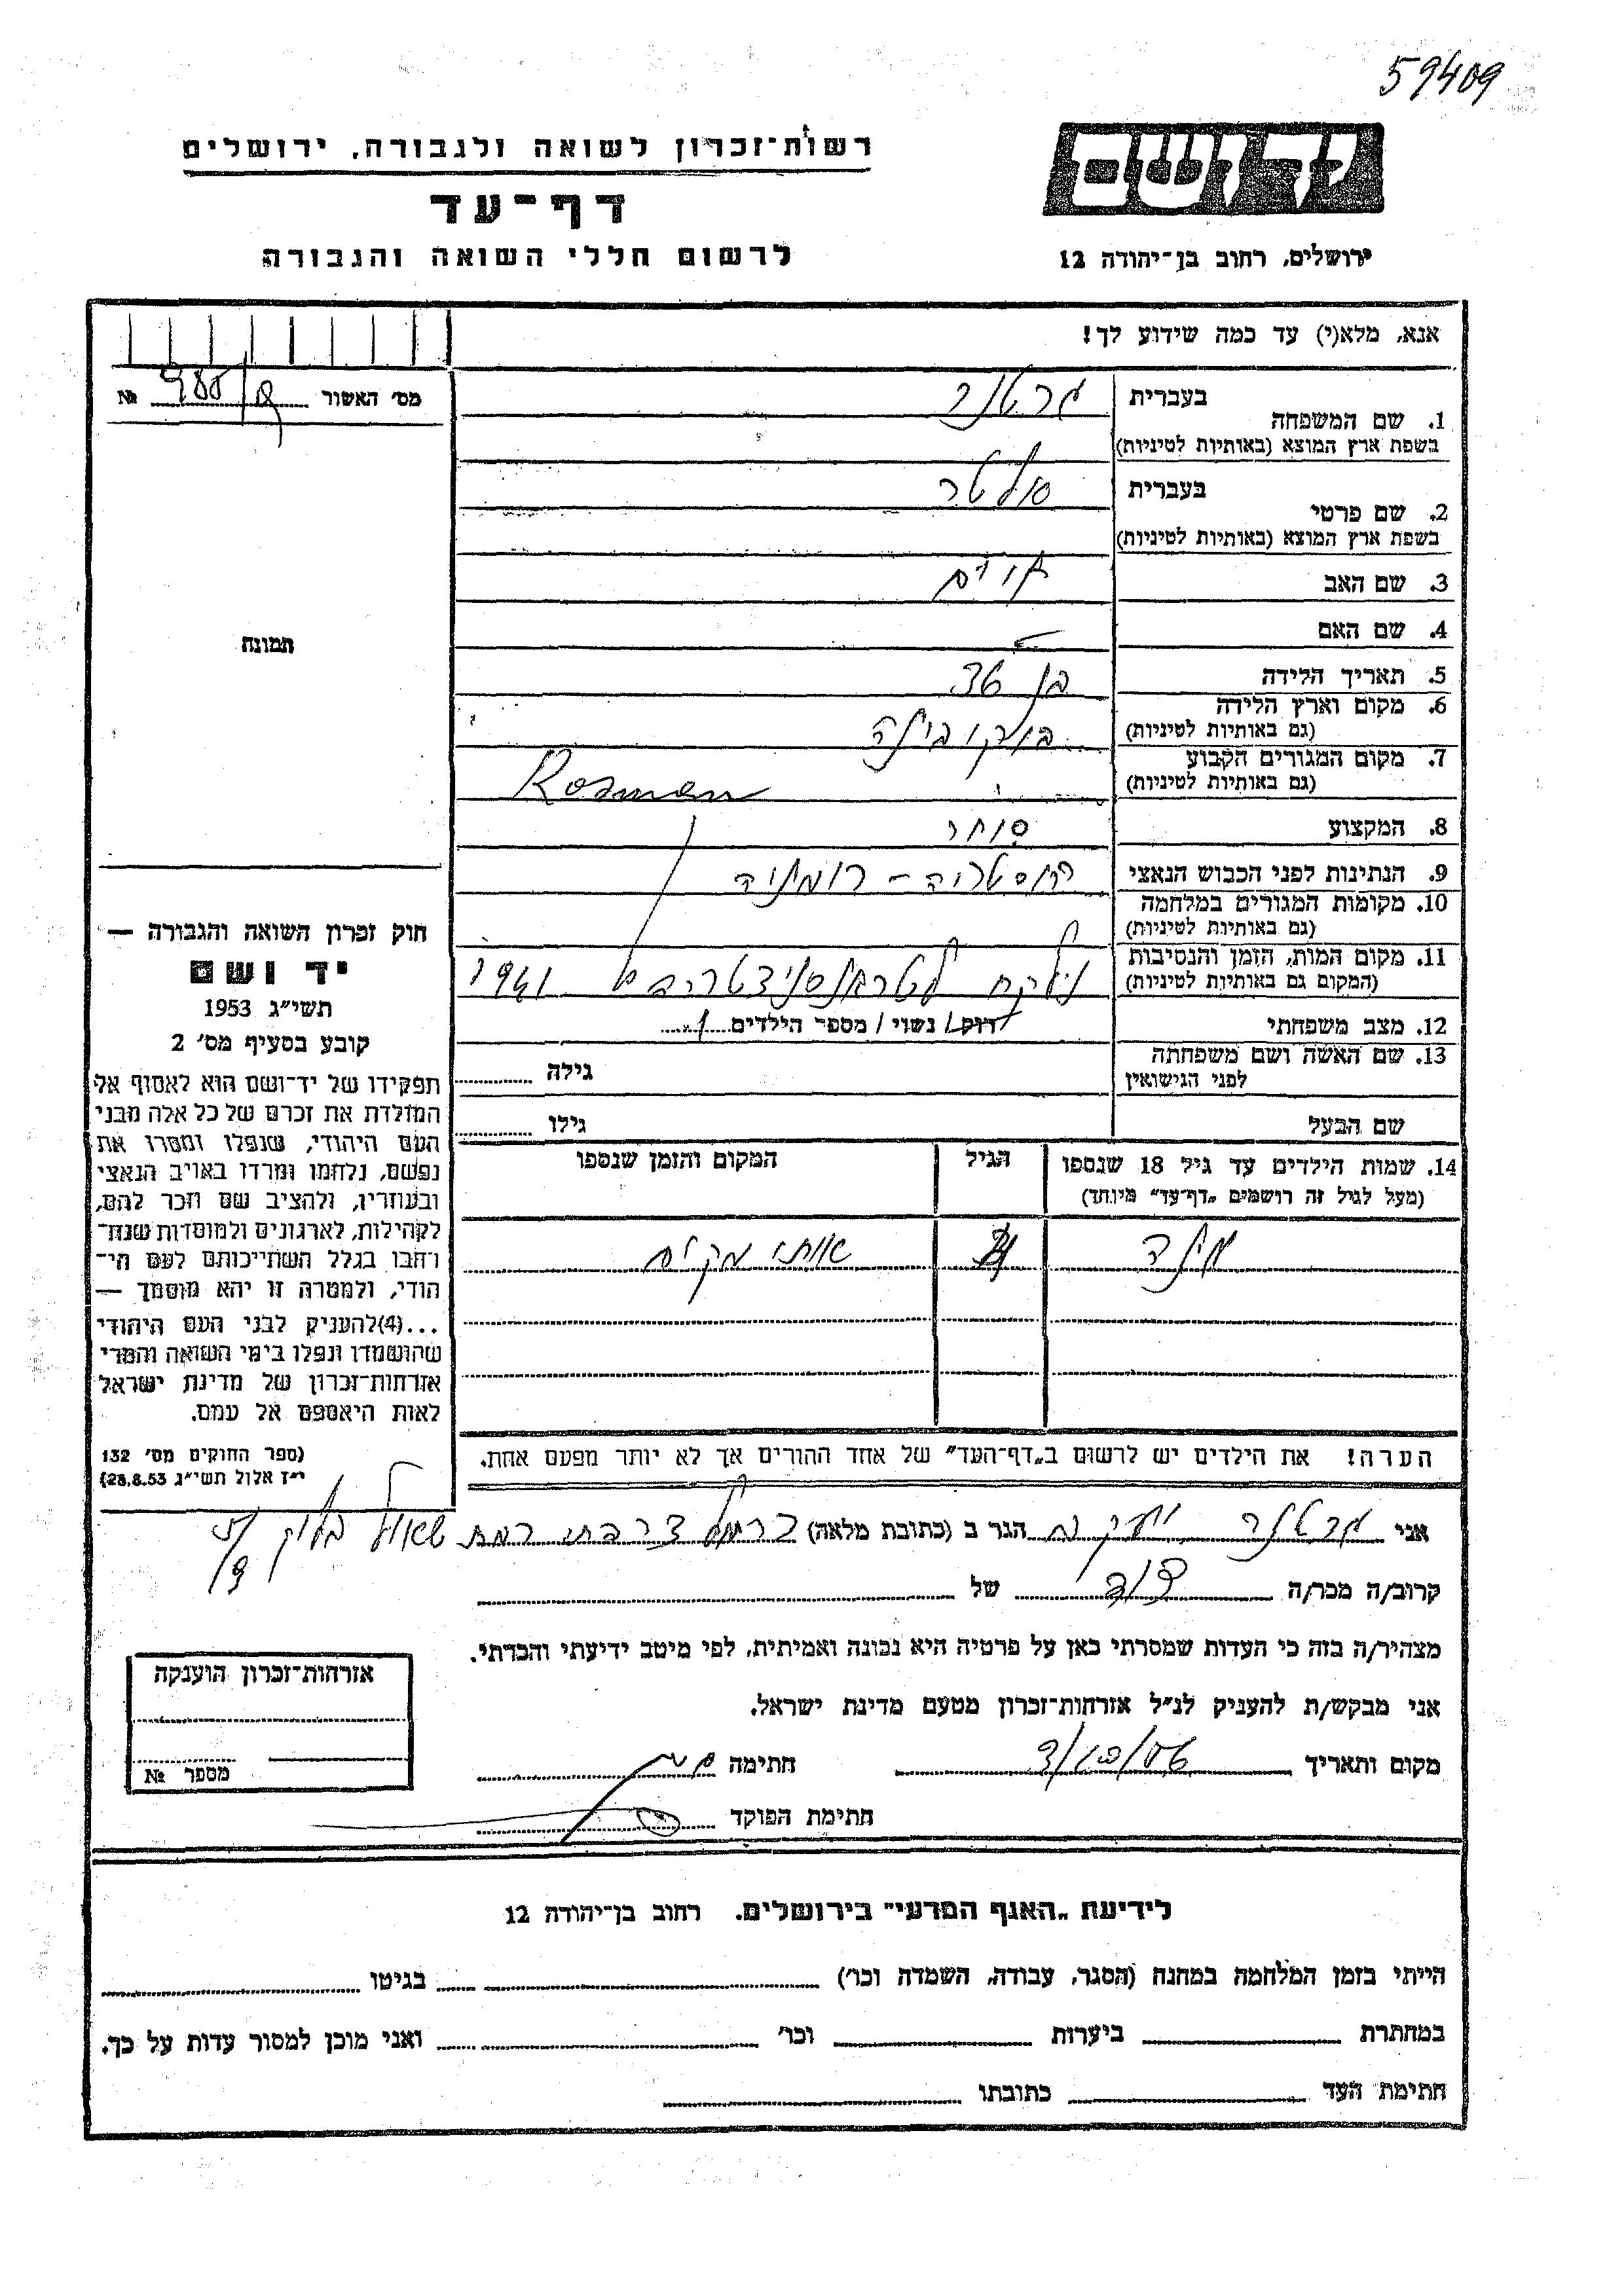 59409
רשות־זכרון לשואה ולגבורה, ירושלים
דף־עד
לרשום חללי השואה והגבורה
יד ושם
ירושלים, רחוב בן־יהודה 12
אנא, מלא(י) עד כמה שידוע לך!
מס׳ האשור №
1. שם המשפחה בעברית גרטנר
בשפת ארץ המוצא (באותיות לטיניות)
2. שם פרטי בעברית
בשפת ארץ המוצא (באותיות לטיניות)
3. שם האב
4. שם האם
5. תאריך הלידה בן 36
6. מקום וארץ הלידה בוקובינה
(גם באותיות לטיניות)
7. מקום המגורים הקבוע
(גם באותיות לטיניות)
8. המקצוע סוחר
9. הנתינות לפני הכבוש הנאצי אוסטריה - רומניה
10. מקומות המגורים במלחמה
(גם באותיות לטיניות)
11. מקום המות, הזמן והנסיבות נלקח לטרנסניסטריה 1941
(המקום גם באותיות לטיניות)
12. מצב משפחתי רווק / נשוי / מספר הילדים 1
13. שם האשה ושם משפחתה גילה
לפני הנישואין
שם הבעל גילו
14. שמות הילדים עד גיל 18 שנספו הגיל המקום והזמן שנספו
(מעל לגיל זה רושמים „דף־עד״ מיוחד)
ילד אותו מקום
הערה! את הילדים יש לרשום ב„דף־העד״ של אחד ההורים אך לא יותר מפעם אחת.
תמונה
חוק זכרון השואה והגבורה —
יד ושם
תשי״ג 1953
קובע בסעיף מס׳ 2
תפקידו של יד־ושם הוא לאסוף אל
המולדת את זכרם של כל אלה מבני
העם היהודי, שנפלו ומסרו את
נפשם, נלחמו ומרדו באויב הנאצי
ובעוזריו, ולהציב שם וזכר להם,
לקהילות, לארגונים ולמוסדות שנח־
רבו בגלל השתייכותם לעם הי־
הודי, ולמטרה זו יהא מוסמך —
...(4)להעניק לבני העם היהודי
שהושמדו ונפלו בימי השואה והמרי
אזרחות־זכרון של מדינת ישראל
לאות היאספם אל עמם.
(ספר החוקים מס׳ 132
י״ז אלול תשי״ג 28.8.53)
אני גרטנר יעקב הגר ב (כתובת מלאה)
קרוב/ה מכר/ה דוד של
מצהיר/ה בזה כי העדות שמסרתי כאן על פרטיה היא נכונה ואמיתית, לפי מיטב ידיעתי והכרתי.
אני מבקש/ת להעניק לנ״ל אזרחות־זכרון מטעם מדינת ישראל.
מקום ותאריך 3/10/56 חתימה
חתימת הפוקד
אזרחות־זכרון הוענקה
מספר №
לידיעת „האגף המדעי״ בירושלים, רחוב בן־יהודה 12
הייתי בזמן המלחמה במחנה (הסגר, עבודה, השמדה וכו׳) בגיטו
במחתרת ביערות וכו׳ ואני מוכן למסור עדות על כך.
חתימת העד כתובתו